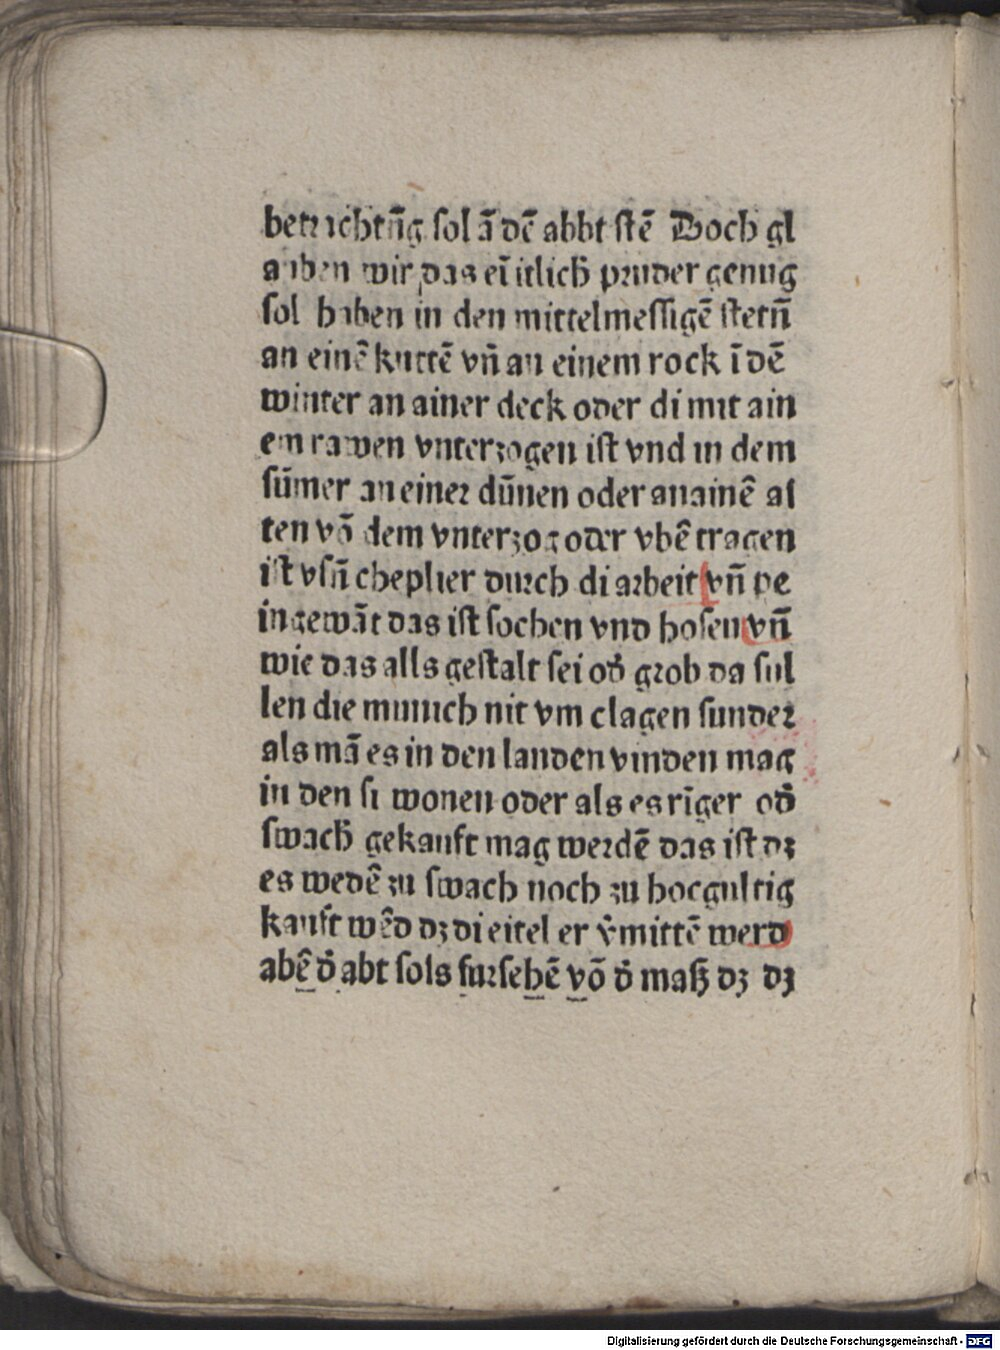 betrachtūg sol ā dē abbt stē Doch gl
auben wir das eī itlich̄ pruder genug
sol haben in den mittelmessigē stetn̄
an einē kuttē vn̄ an einem rock ī dē
winter an ainer deck oder di mit ain
em rawen vnterzogen ist vnd in dem
sūmer an einer dūnen oder an ainē al
ten vō dem vnterzog oder vbē tragen
ist vsn̄ cheplier durch di arbeit vn̄ pe
in gewāt das ist sochen vnd hosen vn̄
wie das alls gestalt sei od̄ grob da sul
len die munich nit vm clagen sunder
als mā es in den landen vinden mag
in den si wonen oder als es rīger od̄
swach̄ gekauft mag werdē das ist dz
es wedē zu swach noch zu hocgultig
kauft wēd dz di eitel er v̄mittē werd
abē d̄ abt sols fursehē vō d̄ maß dz dz
Digitalisierung gefördert durch die Deutsche Forschungsgemeinschaft - DFG